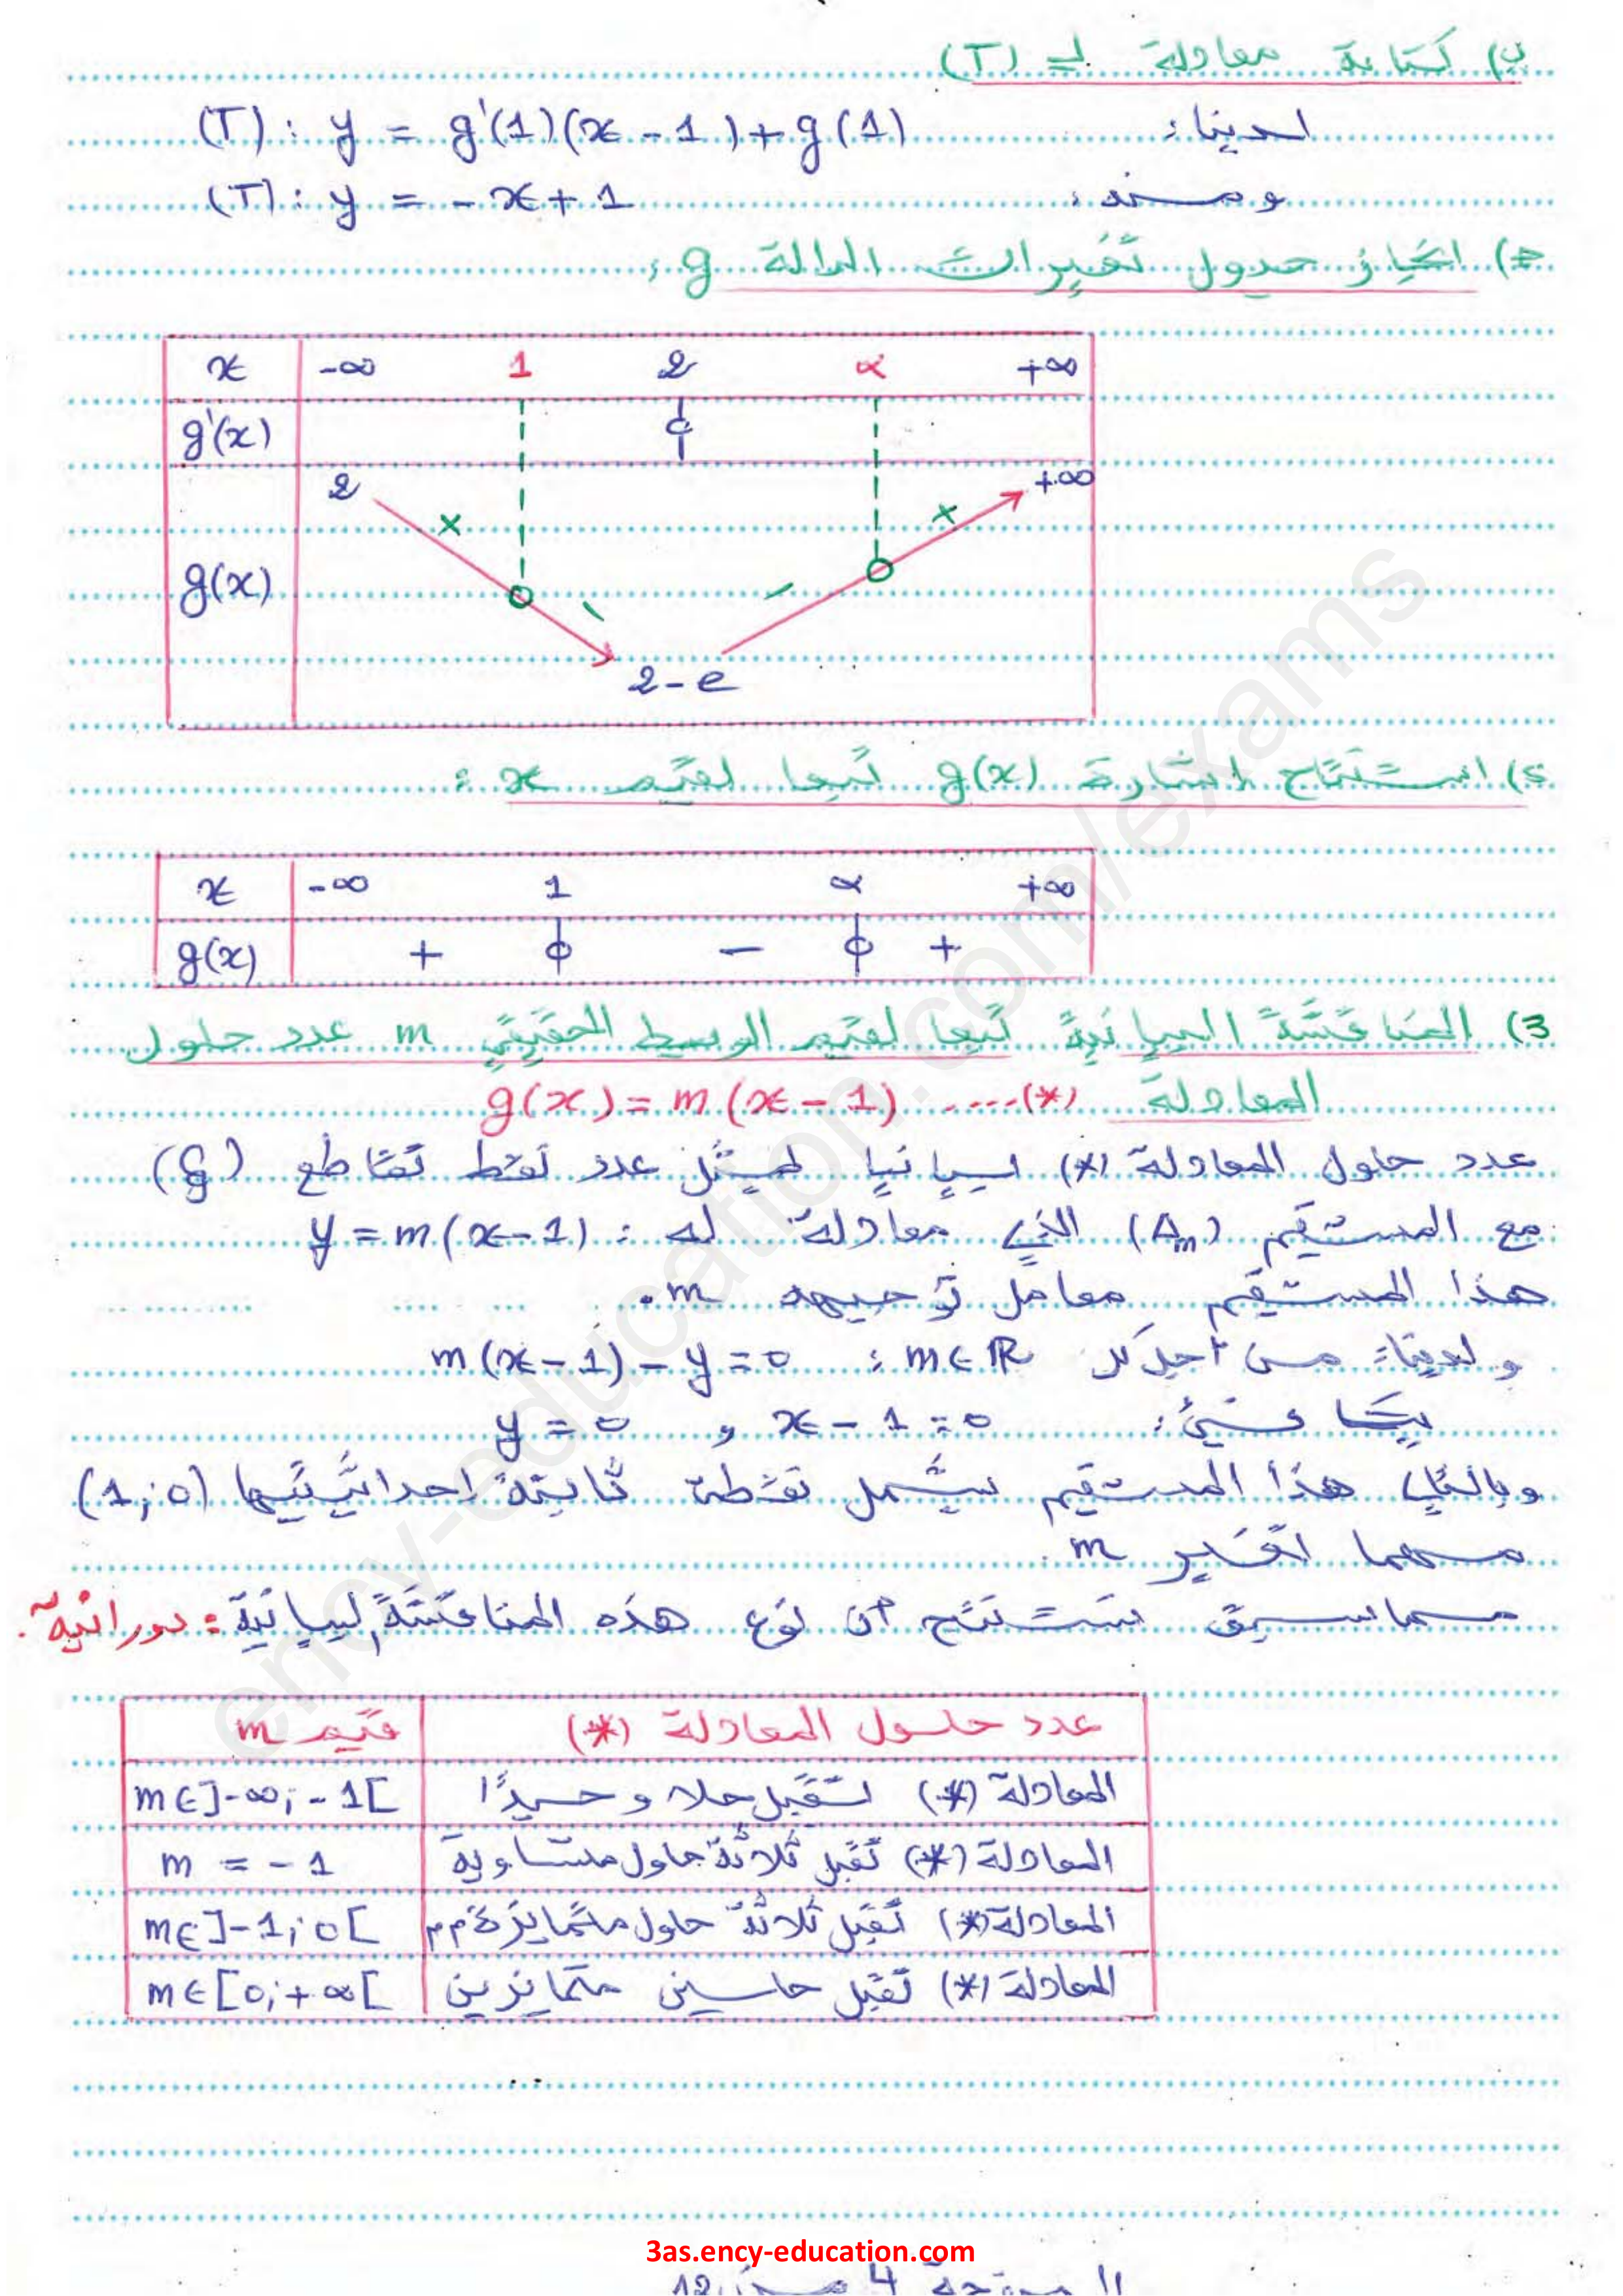 ب) كتابة معادلة لـ (T)
لدينا: (T): y = g'(1)(x-1)+g(1)
ومنه: (T): y = -x+1
ج) انجاز جدول تغيرات الدالة g:
x -∞ 1 2 α +∞
g'(x) 0
g(x) 2 2-e +∞
د) استنتاج إشارة g(x) تبعا لقيم x:
x -∞ 1 α +∞
g(x) + 0 - 0 +
3) المناقشة البيانية تبعا لقيم الوسيط الحقيقي m عدد حلول
المعادلة g(x) = m(x-1) ....(*)
عدد حلول المعادلة (*) بيانيا يمثل عدد نقط تقاطع
مع المستقيم (Δm) الذي معادلة له: y = m(x-1)
هذا المستقيم معامل توجيهه m.
ولدينا: من أجل كل m∈ℝ: m(x-1)-y=0
x-1=0 و y=0
وبالتالي هذا المستقيم يشمل نقطة ثابتة إحداثيتيها (1;0)
مهما تغير m.
مما سبق نستنتج أن نوع هذه المناقشة البيانية: دورانية.
عدد حلول المعادلة (*) قيم m
المعادلة (*) تقبل حلا وحيدًا m∈]-∞;-1[
المعادلة (*) تقبل ثلاثة حلول متساوية m = -1
المعادلة (*) تقبل ثلاثة حلول متمايزة م م m∈]-1;0[
المعادلة (*) تقبل حلين متمايزين m∈[0;+∞[
3as.ency-education.com
الصفحة 4 من 12
ency-education.com/exams